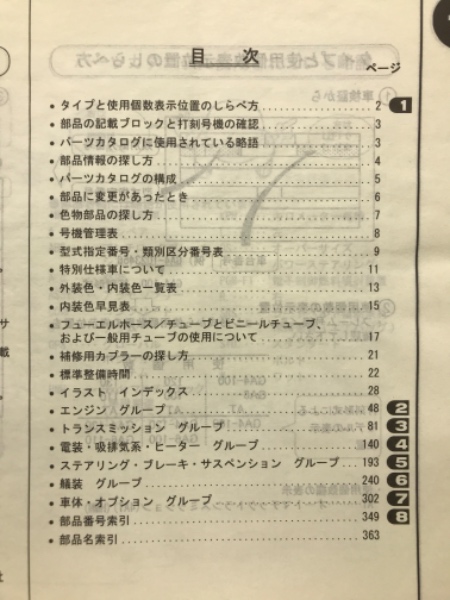 目 次
ページ
• タイプと使用個数表示位置のしらべ方 2 1
• 部品の記載ブロックと打刻号機の確認 3
• パーツカタログに使用されている略語 3
• 部品情報の探し方 4
• パーツカタログの構成 5
• 部品に変更があったとき 6
• 色物部品の探し方 7
• 号機管理表 8
• 型式指定番号・類別区分番号表 9
• 特別仕様車について 11
• 外装色・内装色一覧表 13
• 内装色早見表 15
• フューエルホース/チューブとビニールチューブ、
および一般用チューブの使用について 17
• 補修用カプラーの探し方 21
• 標準整備時間 22
• イラスト インデックス 28
• エンジン グループ 48 2
• トランスミッション グループ 81 3
• 電装・吸排気系・ヒーター グループ 140 4
• ステアリング・ブレーキ・サスペンション グループ 193 5
• 艤装 グループ 240 6
• 車体・オプション グループ 302 7
• 部品番号索引 349 8
• 部品名索引 363